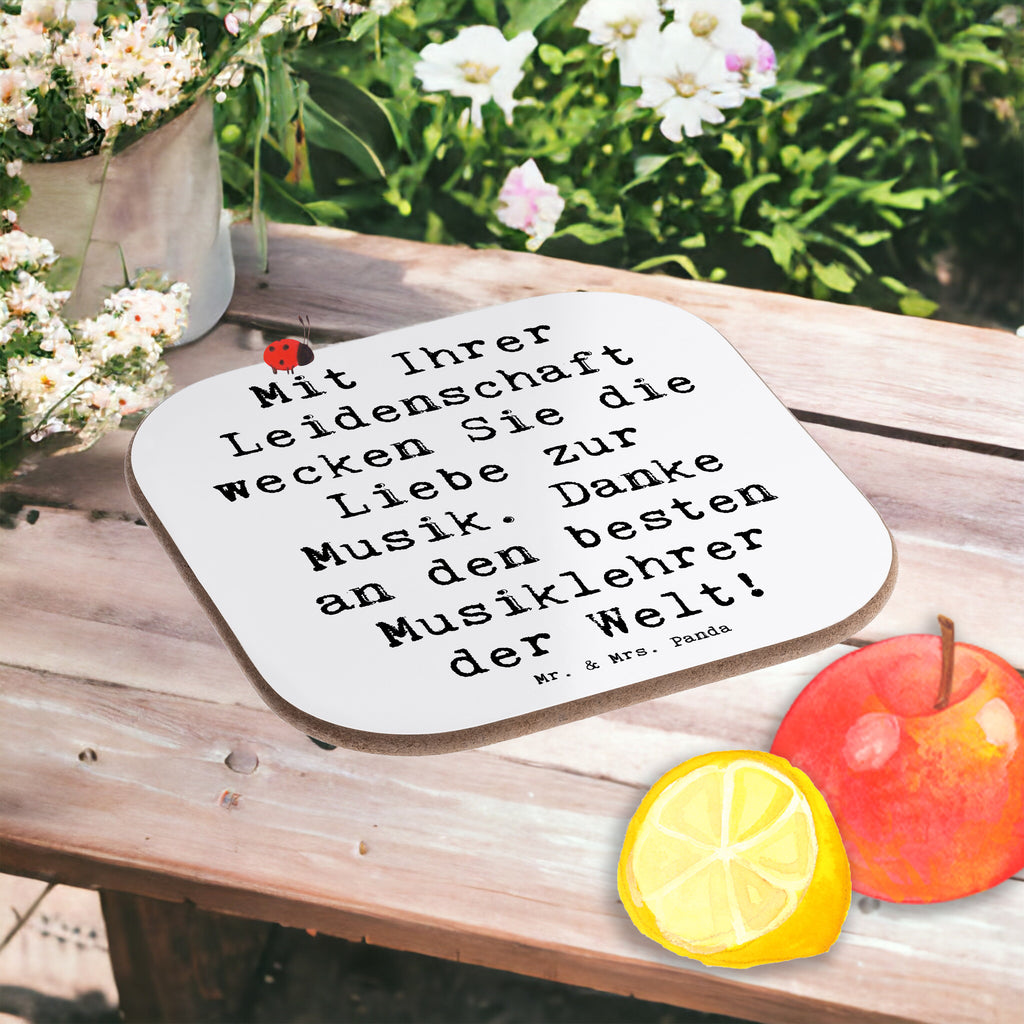 Mit Ihrer
Leidenschaft
wecken Sie die
Liebe zur
Musik. Danke
an den besten
Musiklehrer
der Welt!
Mr. & Mrs. Panda